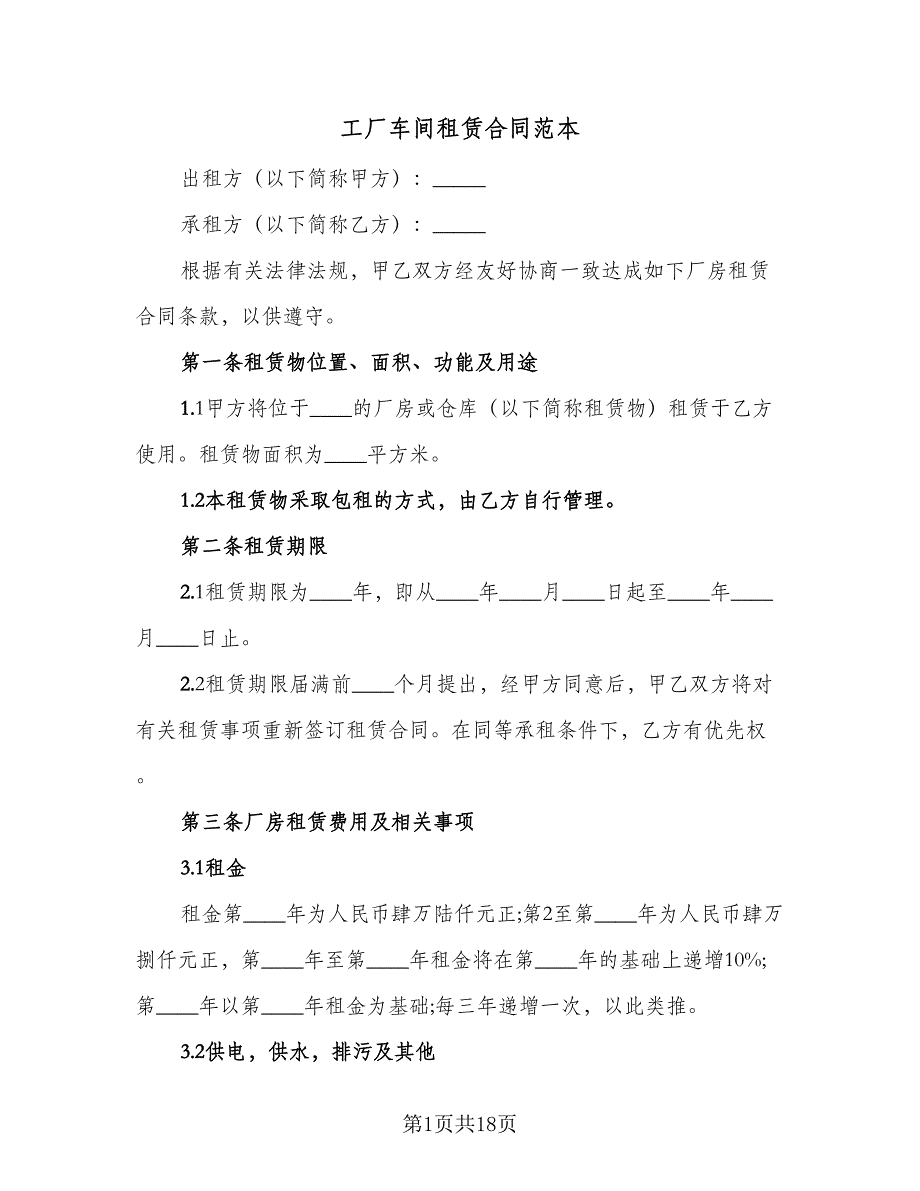 工厂车间租赁合同范本
出租方（以下简称甲方）：_____
承租方（以下简称乙方）：_____
根据有关法律法规，甲乙双方经友好协商一致达成如下厂房租赁
合同条款，以供遵守。
第一条租赁物位置、面积、功能及用途
1.1甲方将位于____的厂房或仓库（以下简称租赁物）租赁于乙方
使用。租赁物面积为____平方米。
1.2本租赁物采取包租的方式，由乙方自行管理。
第二条租赁期限
2.1租赁期限为____年，即从____年____月____日起至____年____
月____日止。
2.2租赁期限届满前____个月提出，经甲方同意后，甲乙双方将对
有关租赁事项重新签订租赁合同。在同等承租条件下，乙方有优先权
。
第三条厂房租赁费用及相关事项
3.1租金
租金第____年为人民币肆万陆仟元正;第2至第____年为人民币肆万
捌仟元正，第____年至第____年租金将在第____年的基础上递增10%;
第____年以第____年租金为基础;每三年递增一次，以此类推。
3.2供电，供水，排污及其他
第1页共18页